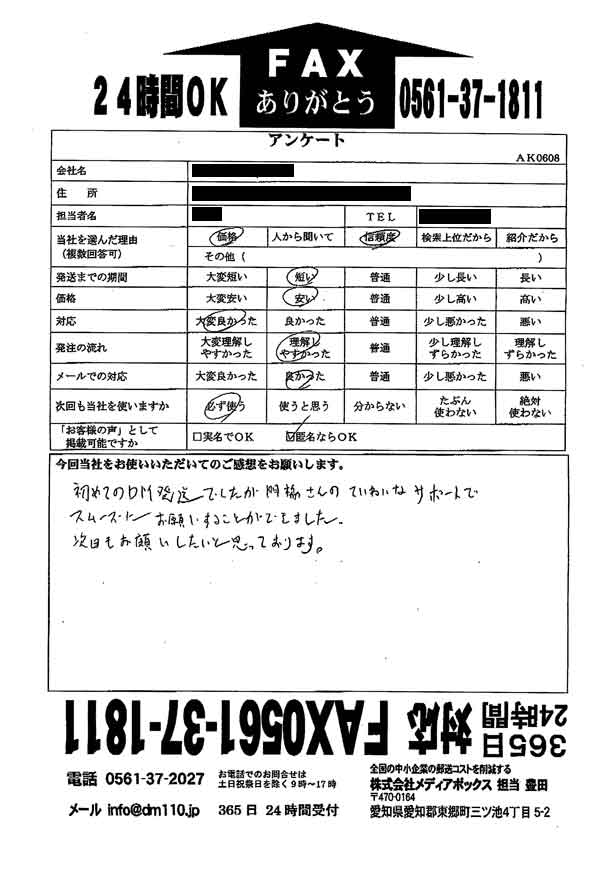 FAX
ありがとう
24時間OK
0561-37-1811
アンケート
AK0608
会社名
住 所
担当者名 TEL
当社を選んだ理由 価格 人から聞いて 信頼度 検索上位だから 紹介だから
(複数回答可) その他( )
発送までの期間 大変短い 短い 普通 少し長い 長い
価格 大変安い 安い 普通 少し高い 高い
対応 大変良かった 良かった 普通 少し悪かった 悪い
発注の流れ 大変理解しやすかった 理解しやすかった 普通 少し理解しずらかった 理解しずらかった
メールでの対応 大変良かった 良かった 普通 少し悪かった 悪い
次回も当社を使いますか 必ず使う 使うと思う 分からない たぶん使わない 絶対使わない
「お客様の声」として
掲載可能ですか □実名でOK ☑匿名ならOK
今回当社をお使いいただいてのご感想をお願いします。
初めてのDM発送でしたが 門脇さんの ていねいな サポートで
スムーズに お願いすることができました。
次回もお願いしたいと思っております。
365日
24時間
対応 FAX0561-37-1811
電話 0561-37-2027
お電話でのお問合せは
土日祝祭日を除く9時〜17時
メール info@dm110.jp 365日 24時間受付
全国の中小企業の郵送コストを削減する
株式会社メディアボックス 担当 豊田
〒470-0164
愛知県愛知郡東郷町三ツ池4丁目5-2